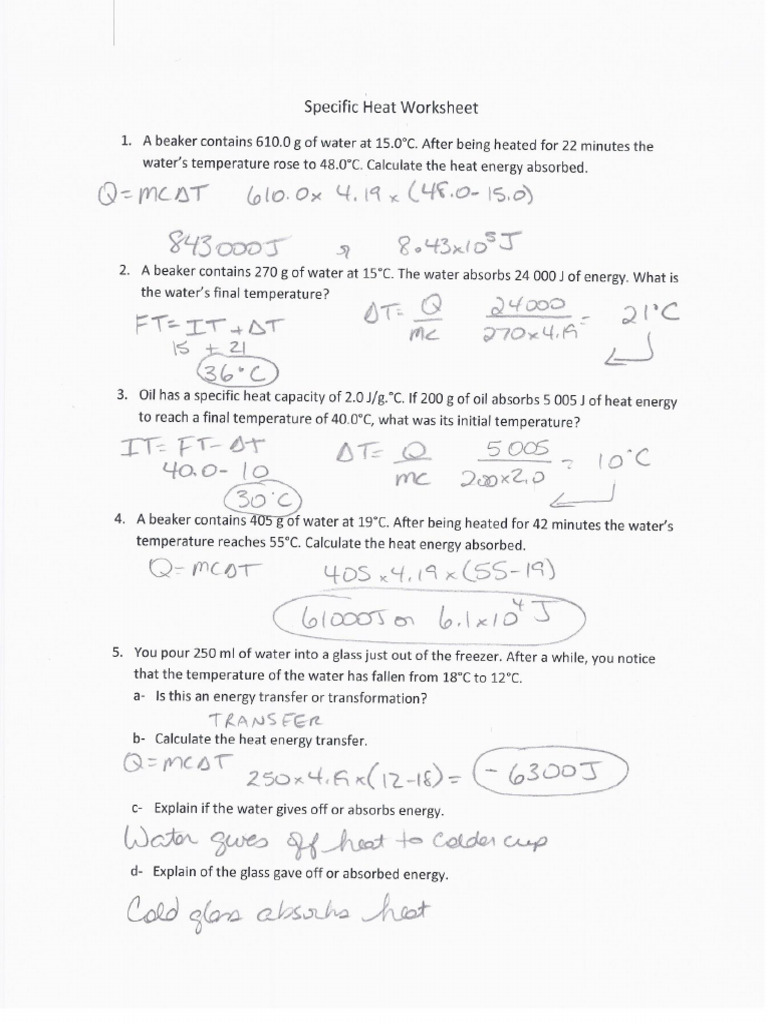 Specific Heat Worksheet
1. A beaker contains 610.0 g of water at 15.0°C. After being heated for 22 minutes the
water's temperature rose to 48.0°C. Calculate the heat energy absorbed.
Q=MCΔT 610.0 x 4.19 x (48.0-15.0)
843000J or 8.43x10⁵J
2. A beaker contains 270 g of water at 15°C. The water absorbs 24 000 J of energy. What is
the water's final temperature?
ΔT= Q/MC 24000/270x4.19 = 21°C
FT=IT+ΔT
15 + 21
36°C
3. Oil has a specific heat capacity of 2.0 J/g.°C. If 200 g of oil absorbs 5 005 J of heat energy
to reach a final temperature of 40.0°C, what was its initial temperature?
IT= FT-ΔT ΔT= Q/MC 5005/200x2.0 = 10°C
40.0-10
30°C
4. A beaker contains 405 g of water at 19°C. After being heated for 42 minutes the water's
temperature reaches 55°C. Calculate the heat energy absorbed.
Q=MCΔT 405 x 4.19 x (55-19)
61000J or 6.1x10⁴J
5. You pour 250 ml of water into a glass just out of the freezer. After a while, you notice
that the temperature of the water has fallen from 18°C to 12°C.
a- Is this an energy transfer or transformation?
TRANSFER
b- Calculate the heat energy transfer.
Q=MCΔT 250x4.19x(12-18)= -6300J
c- Explain if the water gives off or absorbs energy.
Water gives off heat to colder cup
d- Explain of the glass gave off or absorbed energy.
Cold glass absorbs heat